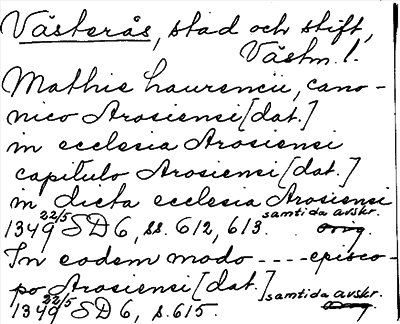 Västerås, stad och stift,
Västm. l.
Mathie Laurencii, cano-
nico Arosiensi [dat.]
in ecclesia Arosiensi
capitulo Arosiensi [dat.]
in dicta ecclesia Arosiensi
1349 22/5 SD 6, ss. 612, 613. samtida avskr. Orig.
In eodem modo ---- episco-
po Arosiensi [dat.]
1349 22/5 SD 6, s. 615. samtida avskr. Orig.